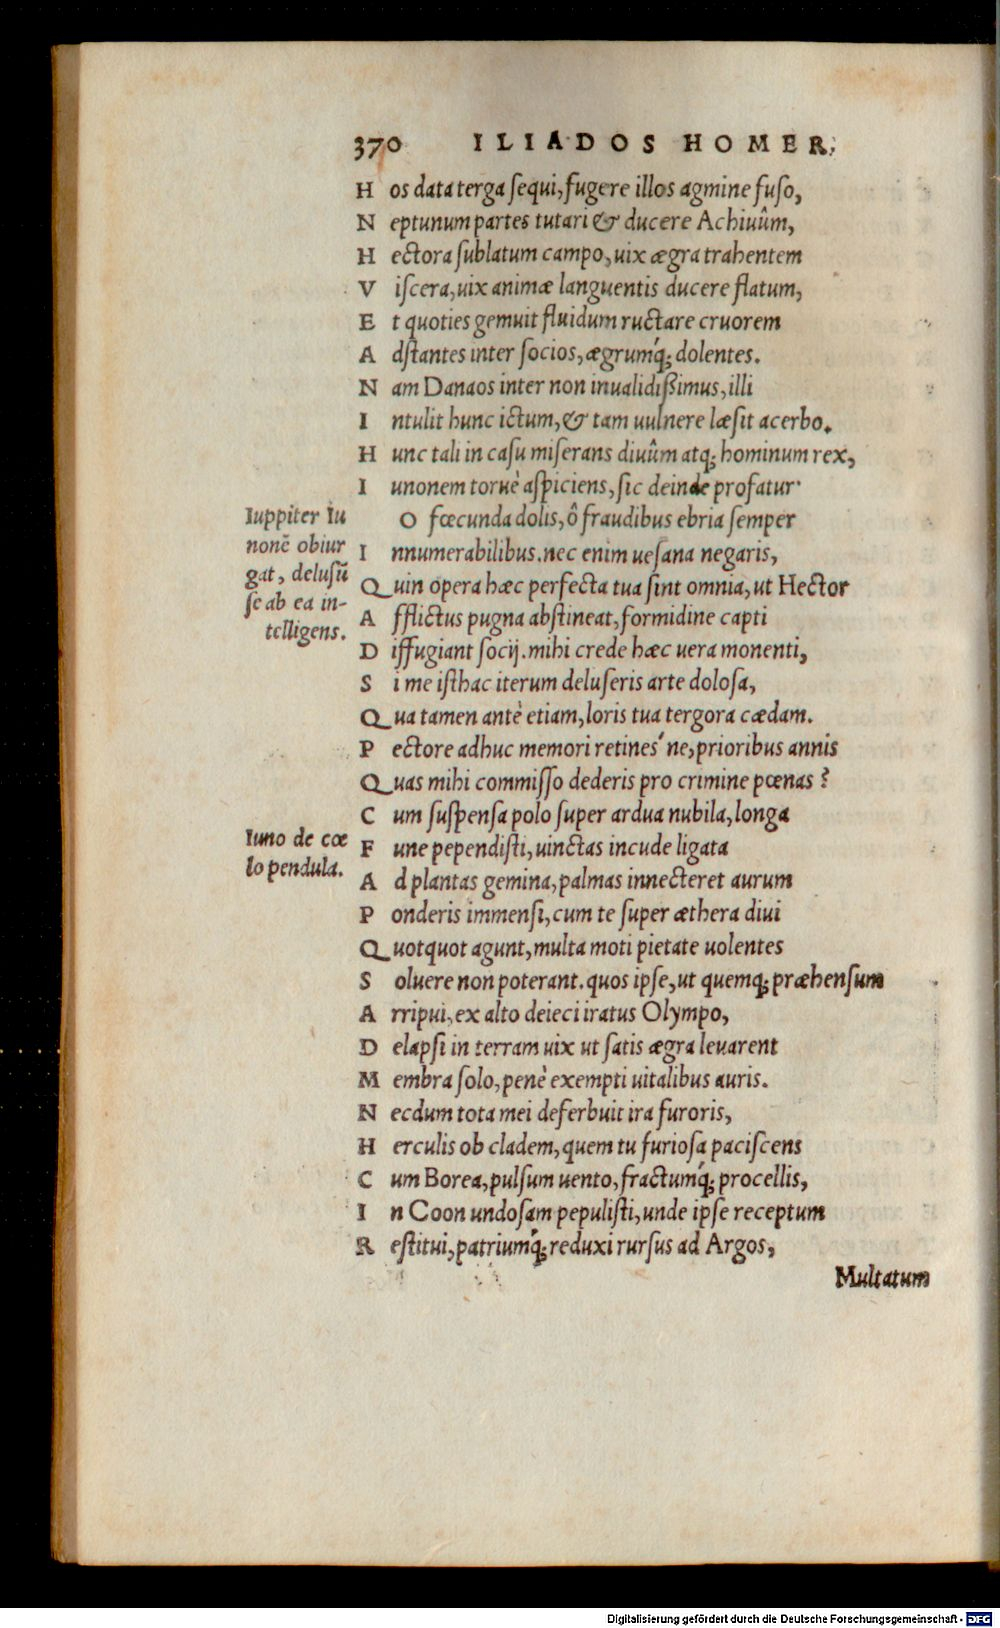 370 ILIADOS HOMER.
Hos data terga sequi, fugere illos agmine fuso,
Neptunum partes tutari & ducere Achiuûm,
Hectora sublatum campo, uix ægra trahentem
Viscera, uix animæ languentis ducere flatum,
Et quoties gemuit fluidum ructare cruorem
Adstantes inter socios, ægrumq́; dolentes.
Nam Danaos inter non inualidißimus, illi
Intulit hunc ictum, & tam uulnere læsit acerbo.
Hunc tali in casu miserans diuûm atq; hominum rex,
Iunonem toruè aspiciens, sic deinde profatur·
Iuppiter Iu
nonē obiur
gat, delusū
se ab ea in-
telligens.
O fœcunda dolis, ô fraudibus ebria semper
Innumerabilibus. nec enim uesana negaris,
Quin opera hæc perfecta tua sint omnia, ut Hector
Afflictus pugna abstineat, formidine capti
Diffugiant socij. mihi crede hæc uera monenti,
Si me isthac iterum deluseris arte dolosa,
Qua tamen antè etiam, loris tua tergora cædam.
Pectore adhuc memori retines´ne, prioribus annis
Quas mihi commisso dederis pro crimine pœnas?
Cum suspensa polo super ardua nubila, longa
Iuno de cœ
lo pendula.
Fune pependisti, uinctas incude ligata
Ad plantas gemina, palmas innecteret aurum
Ponderis immensi, cum te super æthera diui
Quotquot agunt, multa moti pietate uolentes
Soluere non poterant. quos ipse, ut quemq; præhensum
Arripui, ex alto deieci iratus Olympo,
Delapsi in terram uix ut satis ægra leuarent
Membra solo, penè exempti uitalibus auris.
Necdum tota mei deferbuit ira furoris,
Herculis ob cladem, quem tu furiosa paciscens
Cum Borea, pulsum uento, fractumq́; procellis,
In Coon undosam pepulisti, unde ipse receptum
Restitui, patriumq́; reduxi rursus ad Argos,
Multatum
Digitalisierung gefördert durch die Deutsche Forschungsgemeinschaft - DFG